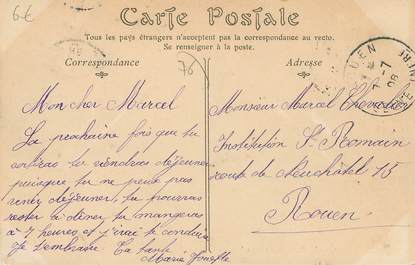 6.€
Carte Postale
Tous les pays étrangers n'acceptent pas la correspondance au recto.
Se renseigner à la poste.
Correspondance
76
Adresse
ROUEN
7-7
08
Mon cher Marcel
La prochaine fois que tu
sortiras tu viendras déjeuner
puisque tu ne peux pas
venir déjeuner, tu pourras
rester à dîner, tu mangeras
à 7 heures et j'irai te conduire
Je t'embrasse Ta tante
Marie
Monsieur Marcel
Institution St Romain
route de Neuchâtel 15
Rouen